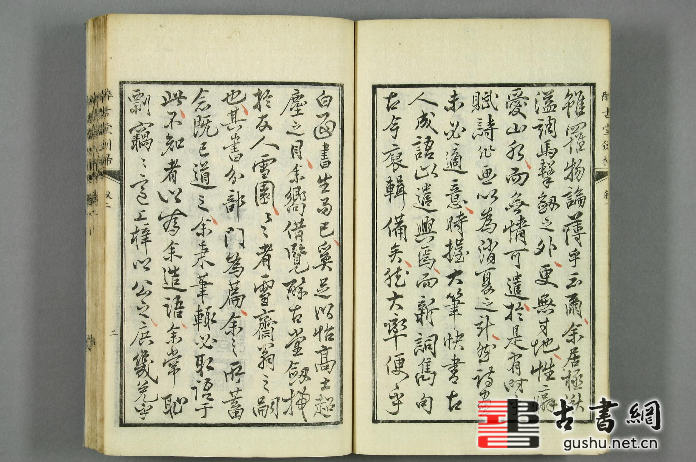 雖罹物論薄乎云爾余居極
調馬擊劔之外更無寸地性癖
愛山水而無情可遣於是省財
賦詩作畫以為消夏之計然詩
未必適意時握大筆快書古
人成語以遣興焉而新詞雋句
古今裒輯備矣然大率便乎
白面書生而已奚足以怡高士超
塵之目余嚮借覽醉古堂劔掃
於友人雪園〻〻者雪齋翁之嗣
也其書分部門為篇余之所蓄
念既已道之余筆輒必取語于
此不知者以為余造語余常恥
剽竊〻意上梓以公之庶幾免乎
二
古書網
gushu.net.cn